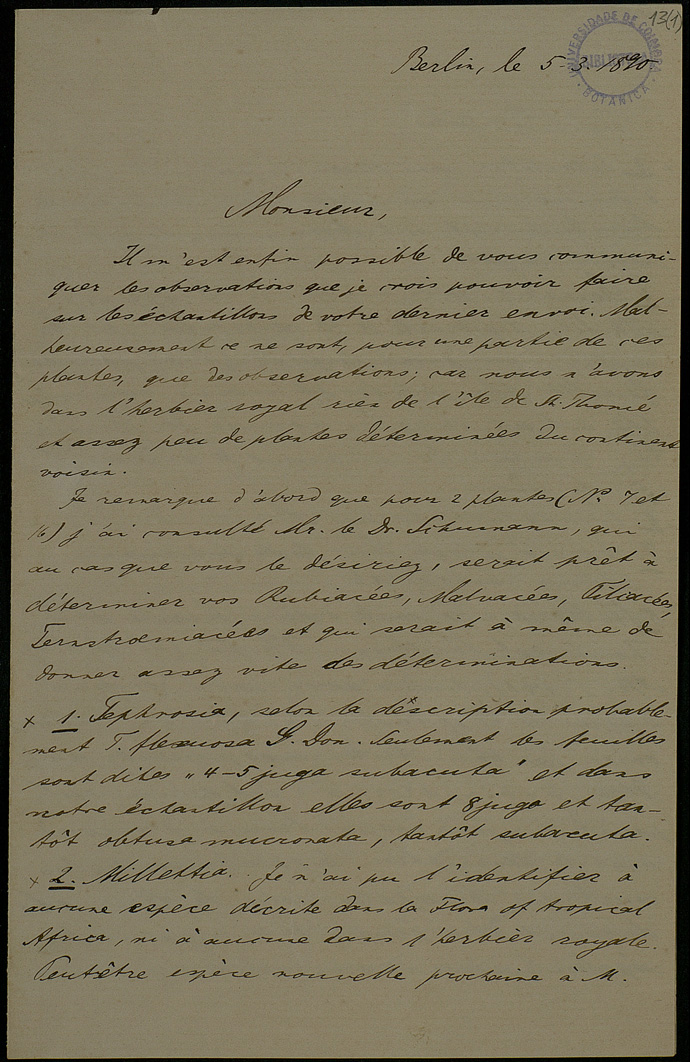 13(1)
UNIVERSIDADE DE COIMBRA
BIBLIOTECA
BOTANICA
Berlin, le 5-3. 1890
Monsieur,
Il m'est enfin possible de vous communi-
quer les observations que je crois pouvoir faire
sur les échantillons de votre dernier envoi. Mal-
heureusement ce ne sont, pour une partie de ces
plantes, que des observations; car nous n'avons
dans l'herbier royal rien de l'île de St. Thomé
et assez peu de plantes déterminées du continent
voisin.
Je remarque d'abord que pour 2 plantes (No. 7 et
16) j'ai consulté Mr. le Dr. Schumann, qui
au cas que vous le désiriez, serait prêt à
déterminer vos Rubiacées, Malvacées, Tiliacées,
Ternstroemiacées et qui serait à même de
donner assez vite des déterminations.
x 1. Tephrosia, selon la déscription probable-
ment T. flexuosa G. Don. Seulement les feuilles
sont dites "4-5 juga subacuta" et dans
notre échantillon elles sont 8 juga et tan-
tôt obtusa mucronata, tantôt subacuta.
x 2. Millettia. Je n'ai pu l'identifier à
aucune espèce décrite dans la Flora of tropical
Africa, ni à aucune dans l'herbier royale.
Peutêtre espèce nouvelle prochaine à M.